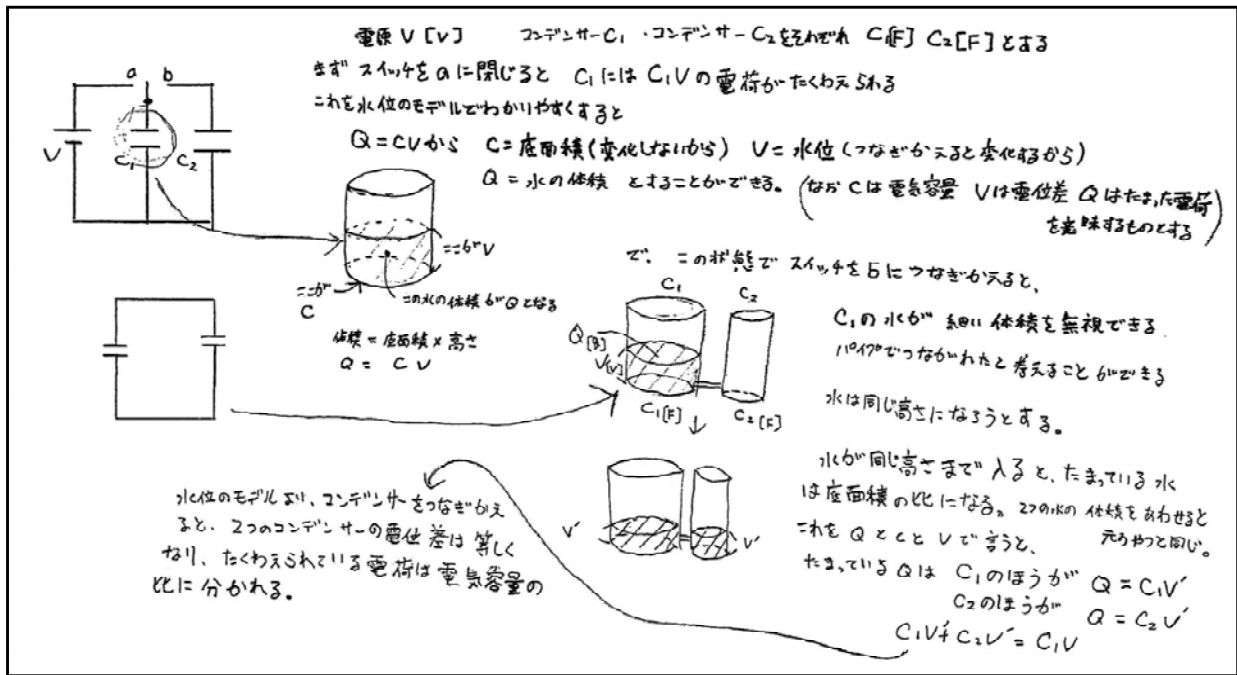 電源 V [V] コンデンサーC₁・コンデンサーC₂をそれぞれ C₁[F] C₂[F]とする
まず スイッチをaに閉じると C₁には C₁Vの電荷がたくわえられる
これを水位のモデルでわかりやすくすると
Q=CVから C=底面積(変化しないから) V=水位(つなぎかえると変化するから)
Q=水の体積 とすることができる。
(なお Cは電気容量 Vは電位差 Qはたまった電荷
を意味するものとする)
a b
V C₁ C₂
ここがV
ここが
C
この水の体積がQとなる
体積=底面積×高さ
Q = CV
で、この状態でスイッチをbにつなぎかえると、
C₁ C₂
Q
V[V]
C₁[F] C₂[F]
C₁の水が 細い 体積を無視できる
パイプでつながれたと考えることができる
水は同じ高さになろうとする。
↓
V′ V′
水が同じ高さまで入ると、たまっている水
は底面積の比になる。2つの水の体積をあわせると
元のやつと同じ。
これを QとCと Vで言うと、
たまっているQは C₁のほうが Q=C₁V′
C₂のほうが Q=C₂V′
C₁V′+C₂V′=C₁V
水位のモデルより、コンデンサーをつなぎかえ
ると、2つのコンデンサーの電位差は等しく
なり、たくわえられている電荷は電気容量の
比に分かれる。